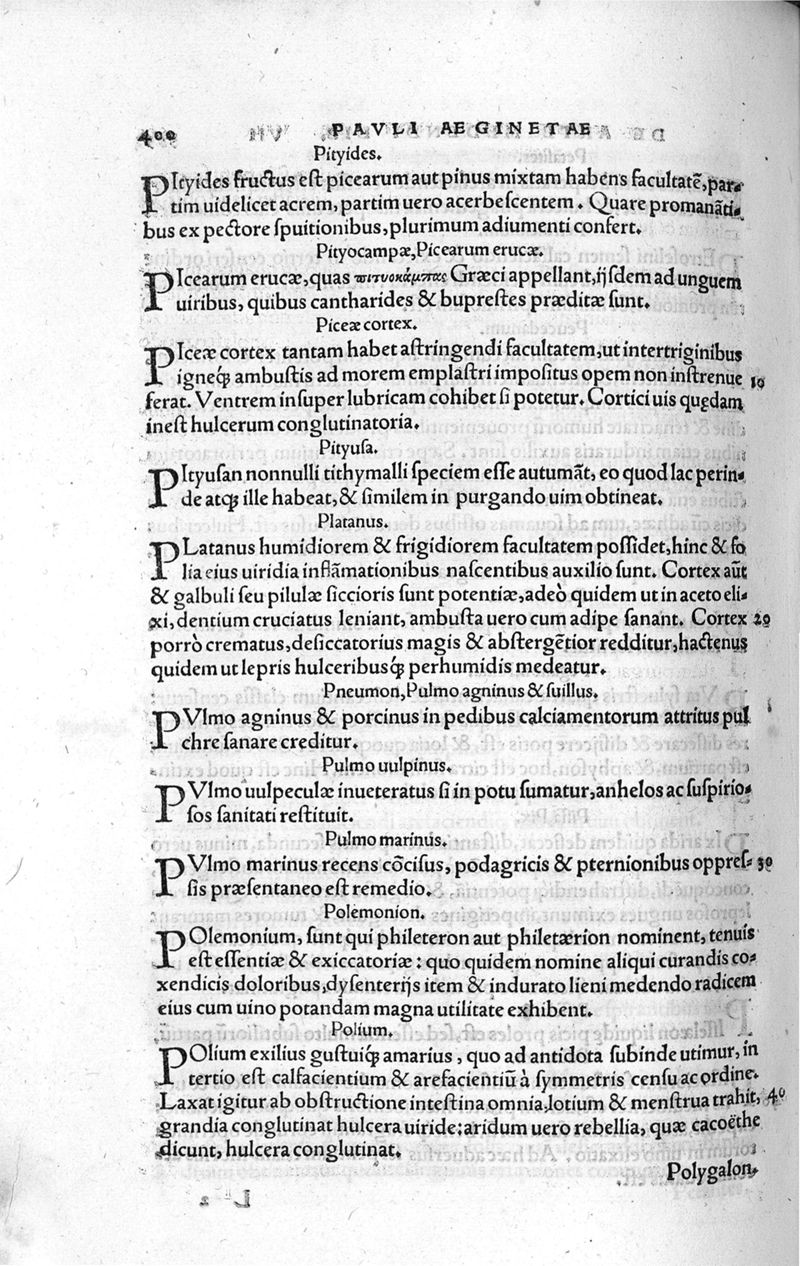 400 PAVLI AEGINETAE
Pityides.
PItyides fructus est picearum aut pinus mixtam habens facultatẽ, par-
tim uidelicet acrem, partim uero acerbescentem. Quare promanãti-
bus ex pectore spuitionibus, plurimum adiumenti confert.
Pityocampæ, Picearum erucæ.
PIcearum erucæ, quas πιτυοκάμπας Græci appellant, ijsdem ad unguem
uiribus, quibus cantharides & buprestes præditæ sunt.
Piceæ cortex.
PIceæ cortex tantam habet astringendi facultatem, ut intertriginibus
igneq́; ambustis ad morem emplastri impositus opem non instrenue 10
ferat. Ventrem insuper lubricam cohibet si potetur. Cortici uis quędam
inest hulcerum conglutinatoria.
Pityusa.
PItyusan nonnulli tithymalli speciem esse autumãt, eo quod lac perin-
de atq; ille habeat, & similem in purgando uim obtineat.
Platanus.
PLatanus humidiorem & frigidiorem facultatem possidet, hinc & fo
lia eius uiridia inflãmationibus nascentibus auxilio sunt. Cortex aũt
& galbuli seu pilulæ siccioris sunt potentiæ, adeò quidem ut in aceto eli-
xi, dentium cruciatus leniant, ambusta uero cum adipe sanant. Cortex 20
porrò crematus, desiccatorius magis & abstergẽtior redditur, hactenus
quidem ut lepris hulceribusq́; perhumidis medeatur.
Pneumon, Pulmo agninus & suillus.
PVlmo agninus & porcinus in pedibus calciamentorum attritus pul
chre sanare creditur.
Pulmo uulpinus.
PVlmo uulpeculæ inueteratus si in potu sumatur, anhelos ac suspirio-
sos sanitati restituit.
Pulmo marinus.
PVlmo marinus recens cõcisus, podagricis & pternionibus oppres- 30
sis præsentaneo est remedio.
Polemonion.
POlemonium, sunt qui phileteron aut philetærion nominent, tenuis
est essentiæ & exiccatoriæ: quo quidem nomine aliqui curandis co-
xendicis doloribus, dysenterijs item & indurato lieni medendo radicem
eius cum uino potandam magna utilitate exhibent.
Polium.
POlium exilius gustuiq́; amarius, quo ad antidota subinde utimur, in
tertio est calfacientium & arefacientiũ à symmetris censu ac ordine.
Laxat igitur ab obstructione intestina omnia, lotium & menstrua trahit, 40
grandia conglutinat hulcera uiride: aridum uero rebellia, quæ cacoëthe
dicunt, hulcera conglutinat.
Polygalon,